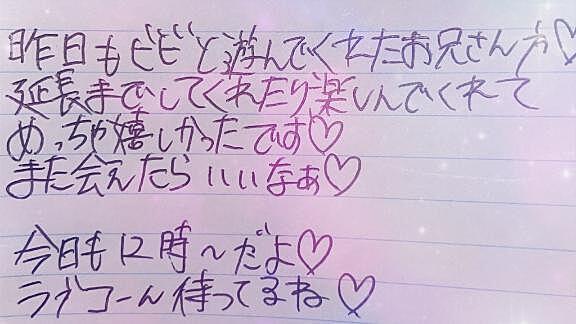 昨日もビビと遊んでくれたお兄さん方♡
延長までしてくれたり楽しんでくれて
めっちゃ嬉しかったです♡
また会えたらいいなぁ♡
今日も12時〜だよ♡
ラブコール待ってるね♡